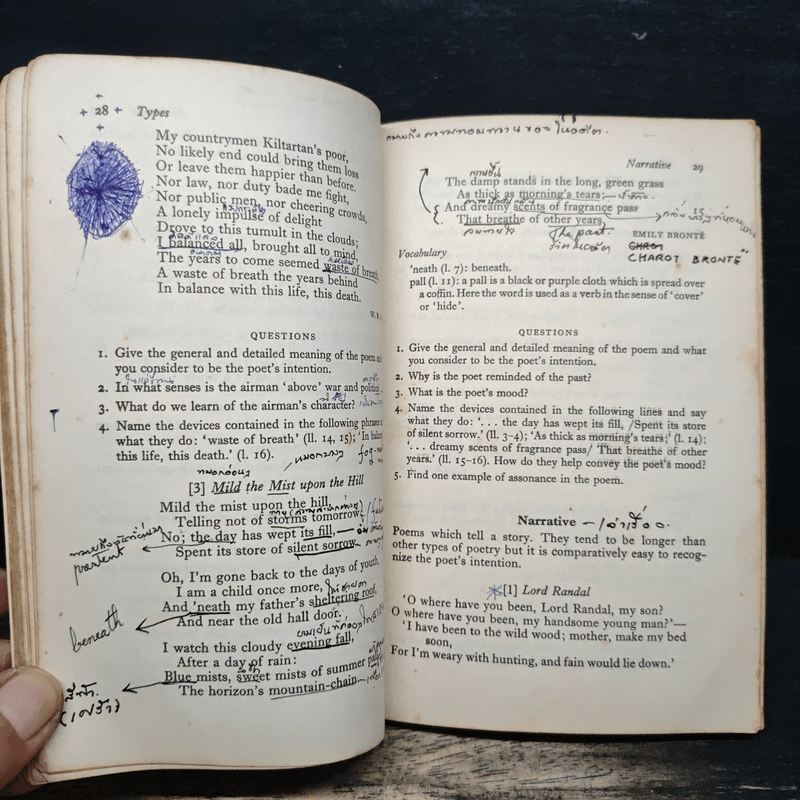 28 Types
My countrymen Kiltartan's poor,
No likely end could bring them loss
Or leave them happier than before.
Nor law, nor duty bade me fight,
Nor public men, nor cheering crowds,
A lonely impulse of delight
Drove to this tumult in the clouds;
I balanced all, brought all to mind,
The years to come seemed waste of breath,
A waste of breath the years behind
In balance with this life, this death.
W. B.
QUESTIONS
1. Give the general and detailed meaning of the poem and
you consider to be the poet's intention.
2. In what senses is the airman 'above' war and
3. What do we learn of the airman's character?
4. Name the devices contained in the following phrases
what they do: 'waste of breath' (ll. 14, 15); 'In balance
this life, this death.' (l. 16).
หมอกอ่อนๆ
[3] Mild the Mist upon the Hill
Mild the mist upon the hill,
Telling not of storms tomorrow;
No; the day has wept its fill,
Spent its store of silent sorrow.
present
Oh, I'm gone back to the days of youth,
I am a child once more,
And 'neath my father's sheltering roof,
And near the old hall door.
beneath
I watch this cloudy evening fall,
After a day of rain:
Blue mists, sweet mists of summer pall
The horizon's mountain-chain.
สีฟ้า
(เศร้า)
Narrative 29
ความชื้น
The damp stands in the long, green grass
As thick as morning's tears;
And dreamy scents of fragrance pass
That breathe of other years.
The past.
EMILY BRONTË
CHAROT BRONTË
Vocabulary
'neath (l. 7): beneath.
pall (l. 11): a pall is a black or purple cloth which is spread over
a coffin. Here the word is used as a verb in the sense of 'cover'
or 'hide'.
QUESTIONS
1. Give the general and detailed meaning of the poem and what
you consider to be the poet's intention.
2. Why is the poet reminded of the past?
3. What is the poet's mood?
4. Name the devices contained in the following lines and say
what they do: '. . . the day has wept its fill, /Spent its store
of silent sorrow.' (ll. 3–4); 'As thick as morning's tears;' (l. 14);
'. . . dreamy scents of fragrance pass/ That breathe of other
years.' (ll. 15–16). How do they help convey the poet's mood?
5. Find one example of assonance in the poem.
Narrative – เล่าเรื่อง
Poems which tell a story. They tend to be longer than
other types of poetry but it is comparatively easy to recog-
nize the poet's intention.
[1] Lord Randal
'O where have you been, Lord Randal, my son?
O where have you been, my handsome young man?'—
'I have been to the wild wood; mother, make my bed
soon,
For I'm weary with hunting, and fain would lie down.'